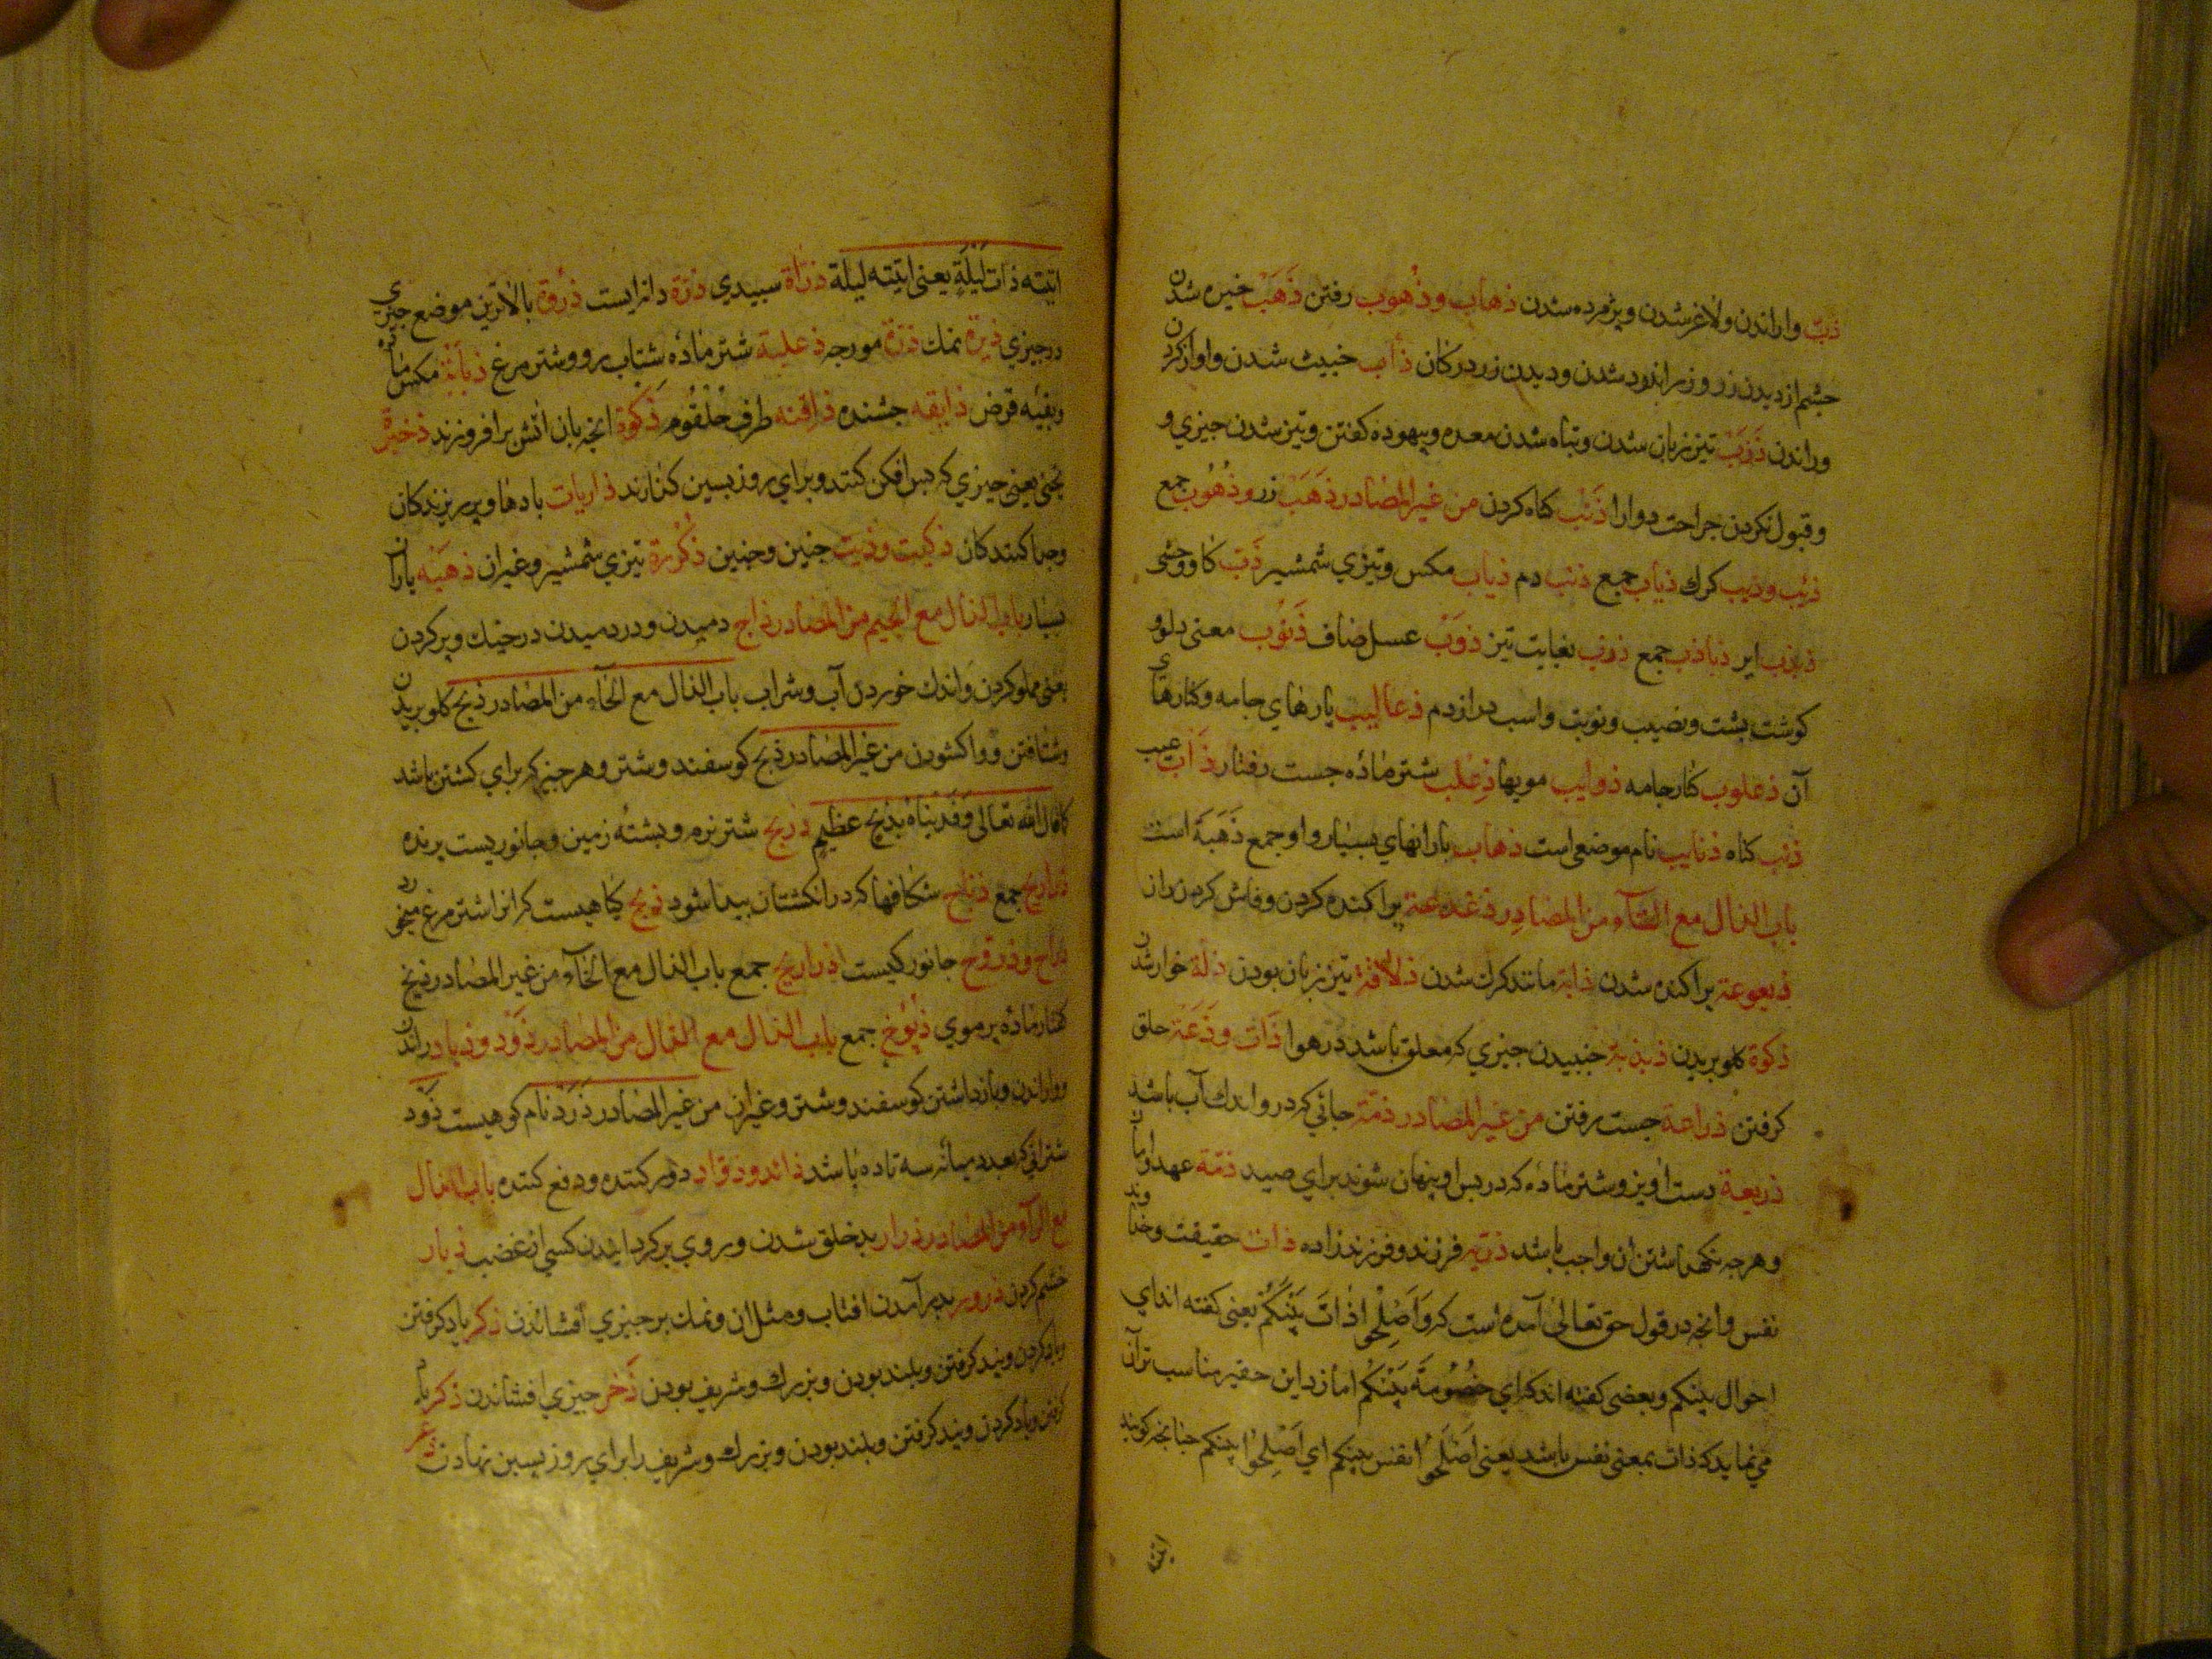 ذبّ واراندن ولاغر شدن وپژمرده شدن ذهاب وذُهوب رفتن ذَهَبْ خیره شدن
چشم از دیدن زر و زر اندود شدن ودیدن زر در کان ذأب خبیث شدن واواز کردن
وراندن ذَرَبْ تیز زبان شدن وتباه شدن معده وبیهوده کفتن وتیز شدن چیزی و
وقبول نکردن جراحت دوا را ذَنْب کناه کردن من غیر المصادر ذَهَبْ زر وذُهُوب جمع
ذئب وذیب کرك ذیاب جمع ذنب دم ذباب مکس وتیزی شمشیر ذَبّ کاو وحشی
جمع ذرب بغایت تیز ذوَبْ عسل صاف ذَنُوب معنی دلو و
کوشت پشت ونصیب ونوبت واسب دراز دم ذعالیب پارهای جامه وکنارهای
آن ذعلوب کنار جامه ذوایب مویها ذِعْلب شتر ماده جست رفتار ذَاب عیب
ذنب کناه ذنایب نام موضعی است ذهاب بارانهای بسیار و او جمع ذَهَبَة است
باب الذال مع التآء من المصادر ذعذعة پراکنده کردن وفاش کردن راز
پراکنده شدن مانند کرك شدن ذلاقة تیز زبان بودن ذلة خوار شدن
ذکوة کلو بریدن ذبذبة جنبیدن چیزی که معلق باشد در هوا حلق
کرفتن جست رفتن من غیر المصادر ذمّة جائی که در و اندك آب باشد
ذریعة دست اویز وشتر ماده که در پس او پنهان شوند برای صید ذمّة عهد وامان
وهرچه نکهداشتن ان واجب باشد ذریّة فرزند وفرزند زاده ذات حقیقت وخداوند
نفس وانچه در قول حق تعالی آمده است که وَاَصْلِحُوا ذَاتَ بَیْنِکُمْ یعنی کفته اند ای
احوال بینکم وبعضی کفته اند که ای خصُومَة بَیْنِکُم اما نزد این حقیر مناسب تر آن
می نماید که ذات بمعنی نفس باشد یعنی اَصْلِحُوا نفس بینکم ای اَصْلِحُوا بینکم چنانچه کویند
اتیته ذات لَیْلَةٍ یعنی اتیته لیلة ذرأة سپیدی ذرة دانه ایست ذروة بالاترین موضع چیزی
نمك ذرّة مورچه ذعلبة شتر ماده شتاب رو وشتر مرغ ذبابة مکس
وبقیه قرض ذایقه چشنده ذاقنه طرف حُلْقُوم ذَکوة انچه بان اتش برافروزند ذخیرة
یعنی چیزی که پس افکن کنند وبرای روز پسین کذارند ذاریات بادها
وجدا کنندکان ذیت وذیت چنین وچنین ذُکْرة تیزی شمشیر وغیر ان ذهبه باران
بسیار باب الذال مع الجیم من المصادر ذاج دمیدن ودر دمیدن در خیك وپر کردن
یعنی مملو کردن واندك خوردن آب وشراب باب الذال مع الحآء من المصادر ذبح کلو بریدن
وشکافتن و واکشودن من غیر المصادر ذبح کوسفند وشتر وهر چیز که برای کشتن باشد
کما قال الله تعالی وَفَدَیْنَاهُ بذِبْحٍ عَظِیمٍ شتر نرم وپشته زمین وجانوریست پرنده
ذراریح جمع ذباح شکافها که در انکشتان پیدا شود ذبح کیاهیست که انرا شتر مرغ میخورد
ذراح وذروح جانورکیست ذراریح جمع باب الذال مع الخآء من غیر المصادر ذیخ
کفتار ماده پر موی ذیُوخ جمع باب الذال مع الدال من المصادر ذَوْد وذیاد راندن
وواراندن وبازداشتن کوسفند وشتر وغیر ان من غیر المصادر نام کوهیست ذَوْد
که بعدد میانه سه تا ده باشد ذائد وذوّاد دور کننده ودفع کننده باب الذال
مع الرآء من المصادر ذرار بدخلق شدن وروی برکردانیدن کسی از غضب ذیار
خشم کردن ذرور بدر آمدن افتاب ومثل ان ونمك بر چیزی افشاندن ذکر یاد کرفتن
ویاد کردن وپند کرفتن وبلند بودن وبزرك وشریف بودن ذَخر چیزی افشاندن ذکر
ویاد کردن وپند کرفتن وبلند بودن وبزرك وشریف را برای روز پسین نهادن